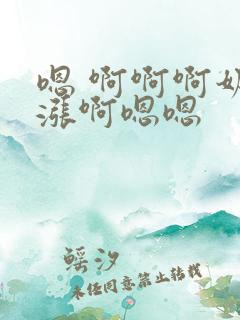 嗯 啊啊啊奶
涨啊嗯嗯
鳐汐
未经同意禁止转载